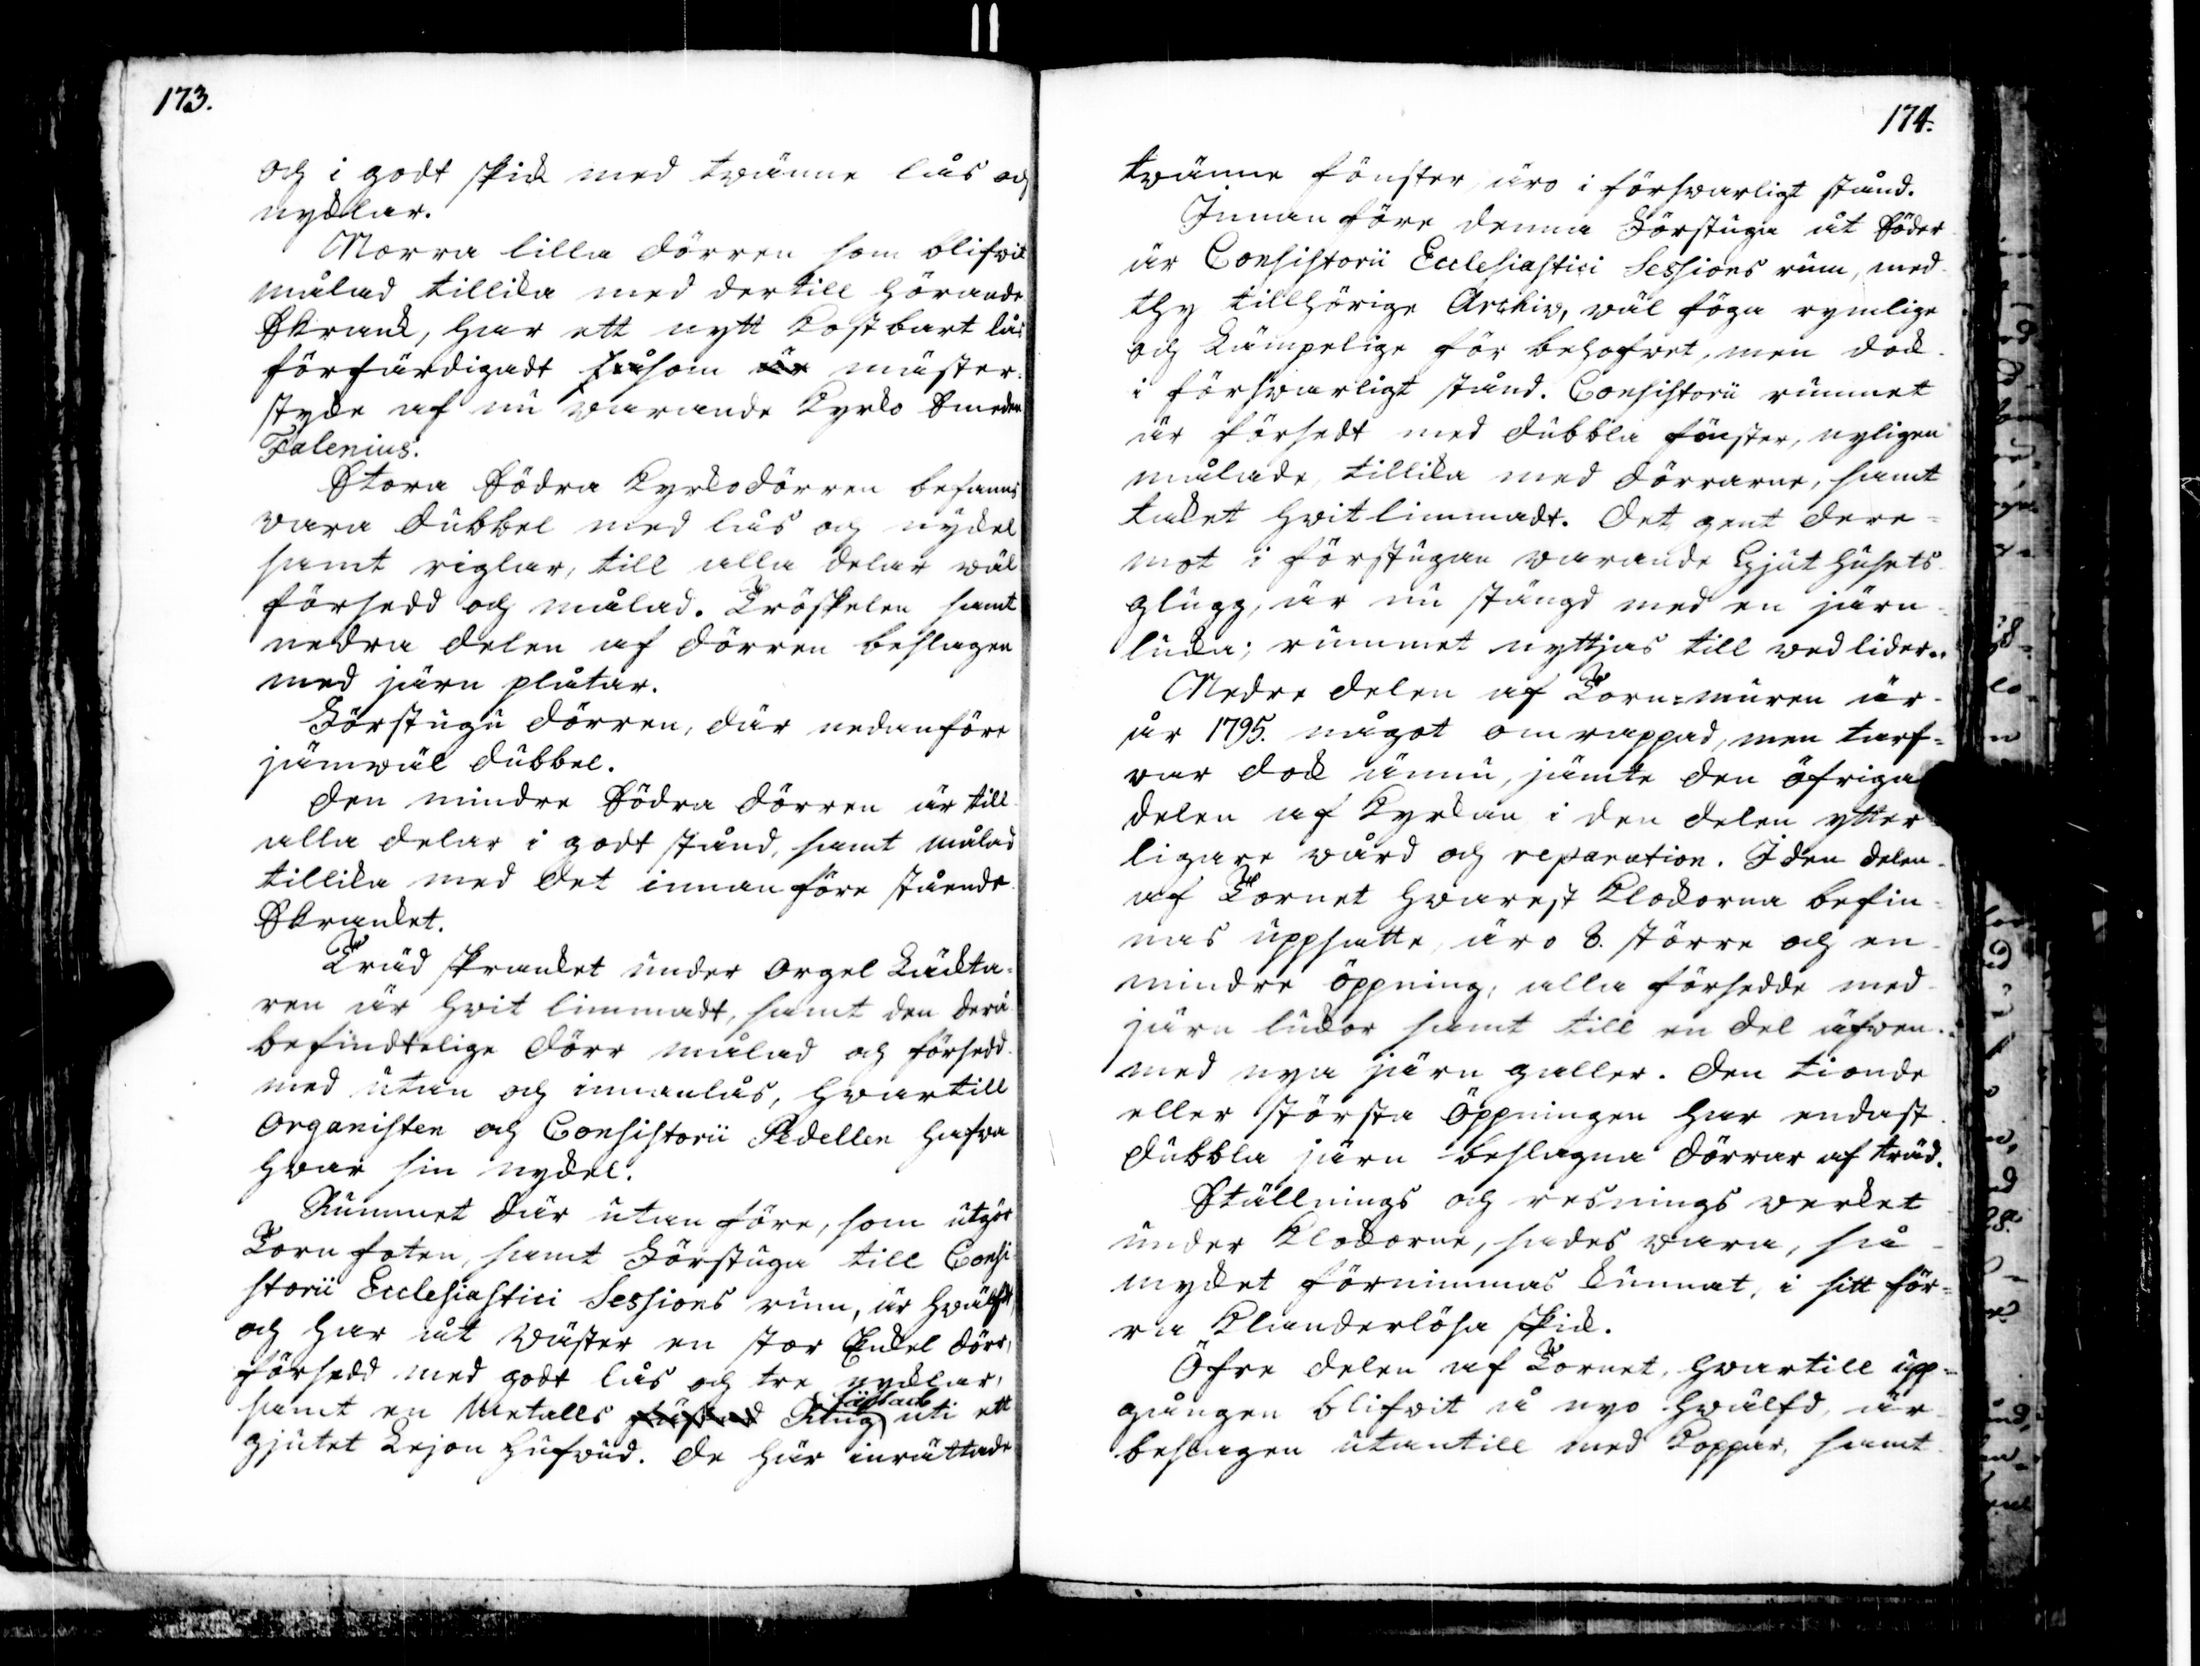 173.
och i godt skick med tvänne lås och
nycklar.
Norra lilla dörren som blifvit
målad tillika med dertill hörande
Skrank, har ett nytt kostbart lås
förfärdigadt såsom är mäster-
stycke af nu varande Kyrko Smeden
Falenius.
Stora Södra Kyrkodörren befanns
vara dubbel med lås och nyckel
samt riglar, till alla delar wäl
försedd och målad. Tröskelen samt
nedra delen af dörren beslagen
med järn plåtar.
Förstugu dörren, där nedanföre
jämwäl dubbel.
Den mindre Södra dörren är till
alla delar i godt stånd, samt målad
tillika med det innanföre stående
Skranket.
Träd skranket under Orgel Läckta-
ren är hvit limmadt, samt den derå
befindtelige dörr målad och försedd
med utan och innanlås, hvartill
Organisten och Consistorii Pedellen hafva
hvar sin nyckel.
Rummet där utanföre, som utgör
Torn foten, samt Förstuga till Consi-
storii Ecclesiastici Sessions rum, är hvälft,
och har åt Wäster en stor Enkel dörr,
försedd med godt lås och tre nycklar,
samt en Metalls Ring uti ett
gjutet Lejon hufvud. De här inrättade
174.
tvänne fönster, äro i försvarligt stånd.
Innanföre denna Förstuga åt Söder
är Consistorii Ecclesiastici Sessions rum, med
thy tillhörige Archiv, wäl föga rymlige
och Lämpelige för behofvet, men dock
i försvarligt stånd. Consistorii rummet
är försedt med dubbla fönster, nyligen
målade, tillika med dörrarne, samt
taket hvitlimmadt. Det gent dere-
mot i förstugan varande Gjut husets
glugg, är nu stängd med en järn
lucka; rummet nyttjas till vedlider.
Nedre delen af Torn-muren är
år 1795. något omrappad, men tarf-
var dock ännu, jämte den öfriga
delen af Kyrkan i den delen ytter-
ligare vård och reparation. I den delen
af Tornet hvarest Klockorna befin-
nas uppsatte, äro 8. större och en
mindre öppning, alla försedde med
järn luckor samt till en del äfven
med nya järn galler. Den tionde
eller största Öppningen har endast
dubbla järn beslagna dörrar af träd.
Ställnings och resnings verket
under Klockorne, sades vara, så
mycket förnimmas kunnat, i sitt för-
ra Klanderlösa skick.
Öfre delen af Tornet, hvartill upp-
gången blifvit å nyo hvälfd, är
beslagen utantill med Koppar, samt